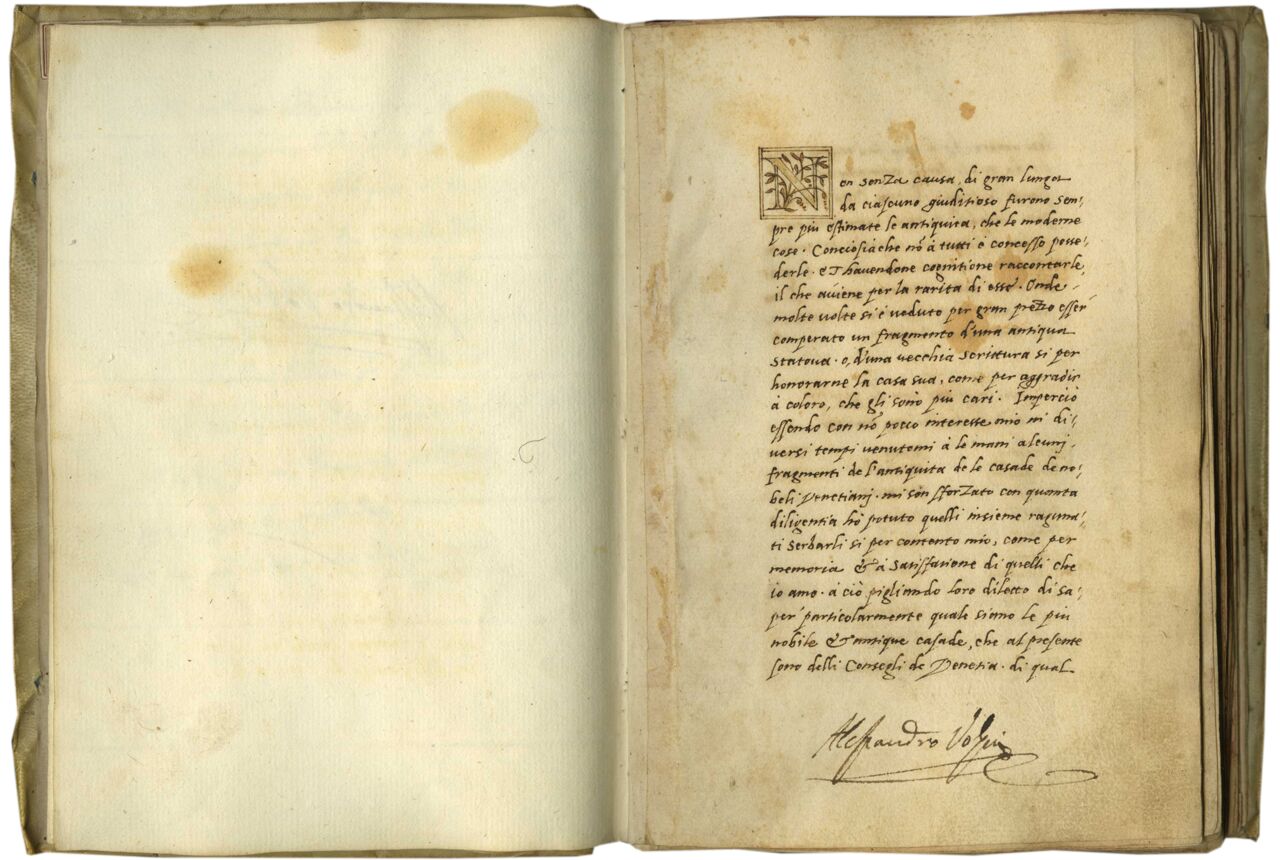 Non senza causa, di gran lunga
da ciascuno giuditioso furono sem-
pre più estimate le antiquità, che le moderne
cose. Conciosiache nõ à tutti è concesso posse-
derle. et havendone cognitione raccontarle,
il che aviene per la rarità di esse. Onde
molte volte si è veduto per gran prezzo esser
comperato un fragmento d'una antiqua
Statova. o, d'una vecchia Scrittura si per
honorarne la casa sua, come per aggradir
à coloro, che gli sono più cari. Imperciò
essendo con nõ pocco interesse mio ni di-
versi tempi venutomi à le mani alcunj
fragmenti de l'antiquita de le casade de no-
beli Venetianj. mi son sforzato con quanta
diligentia hò potuto quelli insieme raguna-
ti Serbarli si per contento mio, come per
memoria & à Satisfatione di quelli che
io amo. à ciò pigliando loro diletto di sa-
per particolarmente quale siano le più
nobile & antique casade, che al presente
sono delli Consegli de Venetia. di qual
Alessandro Volpin